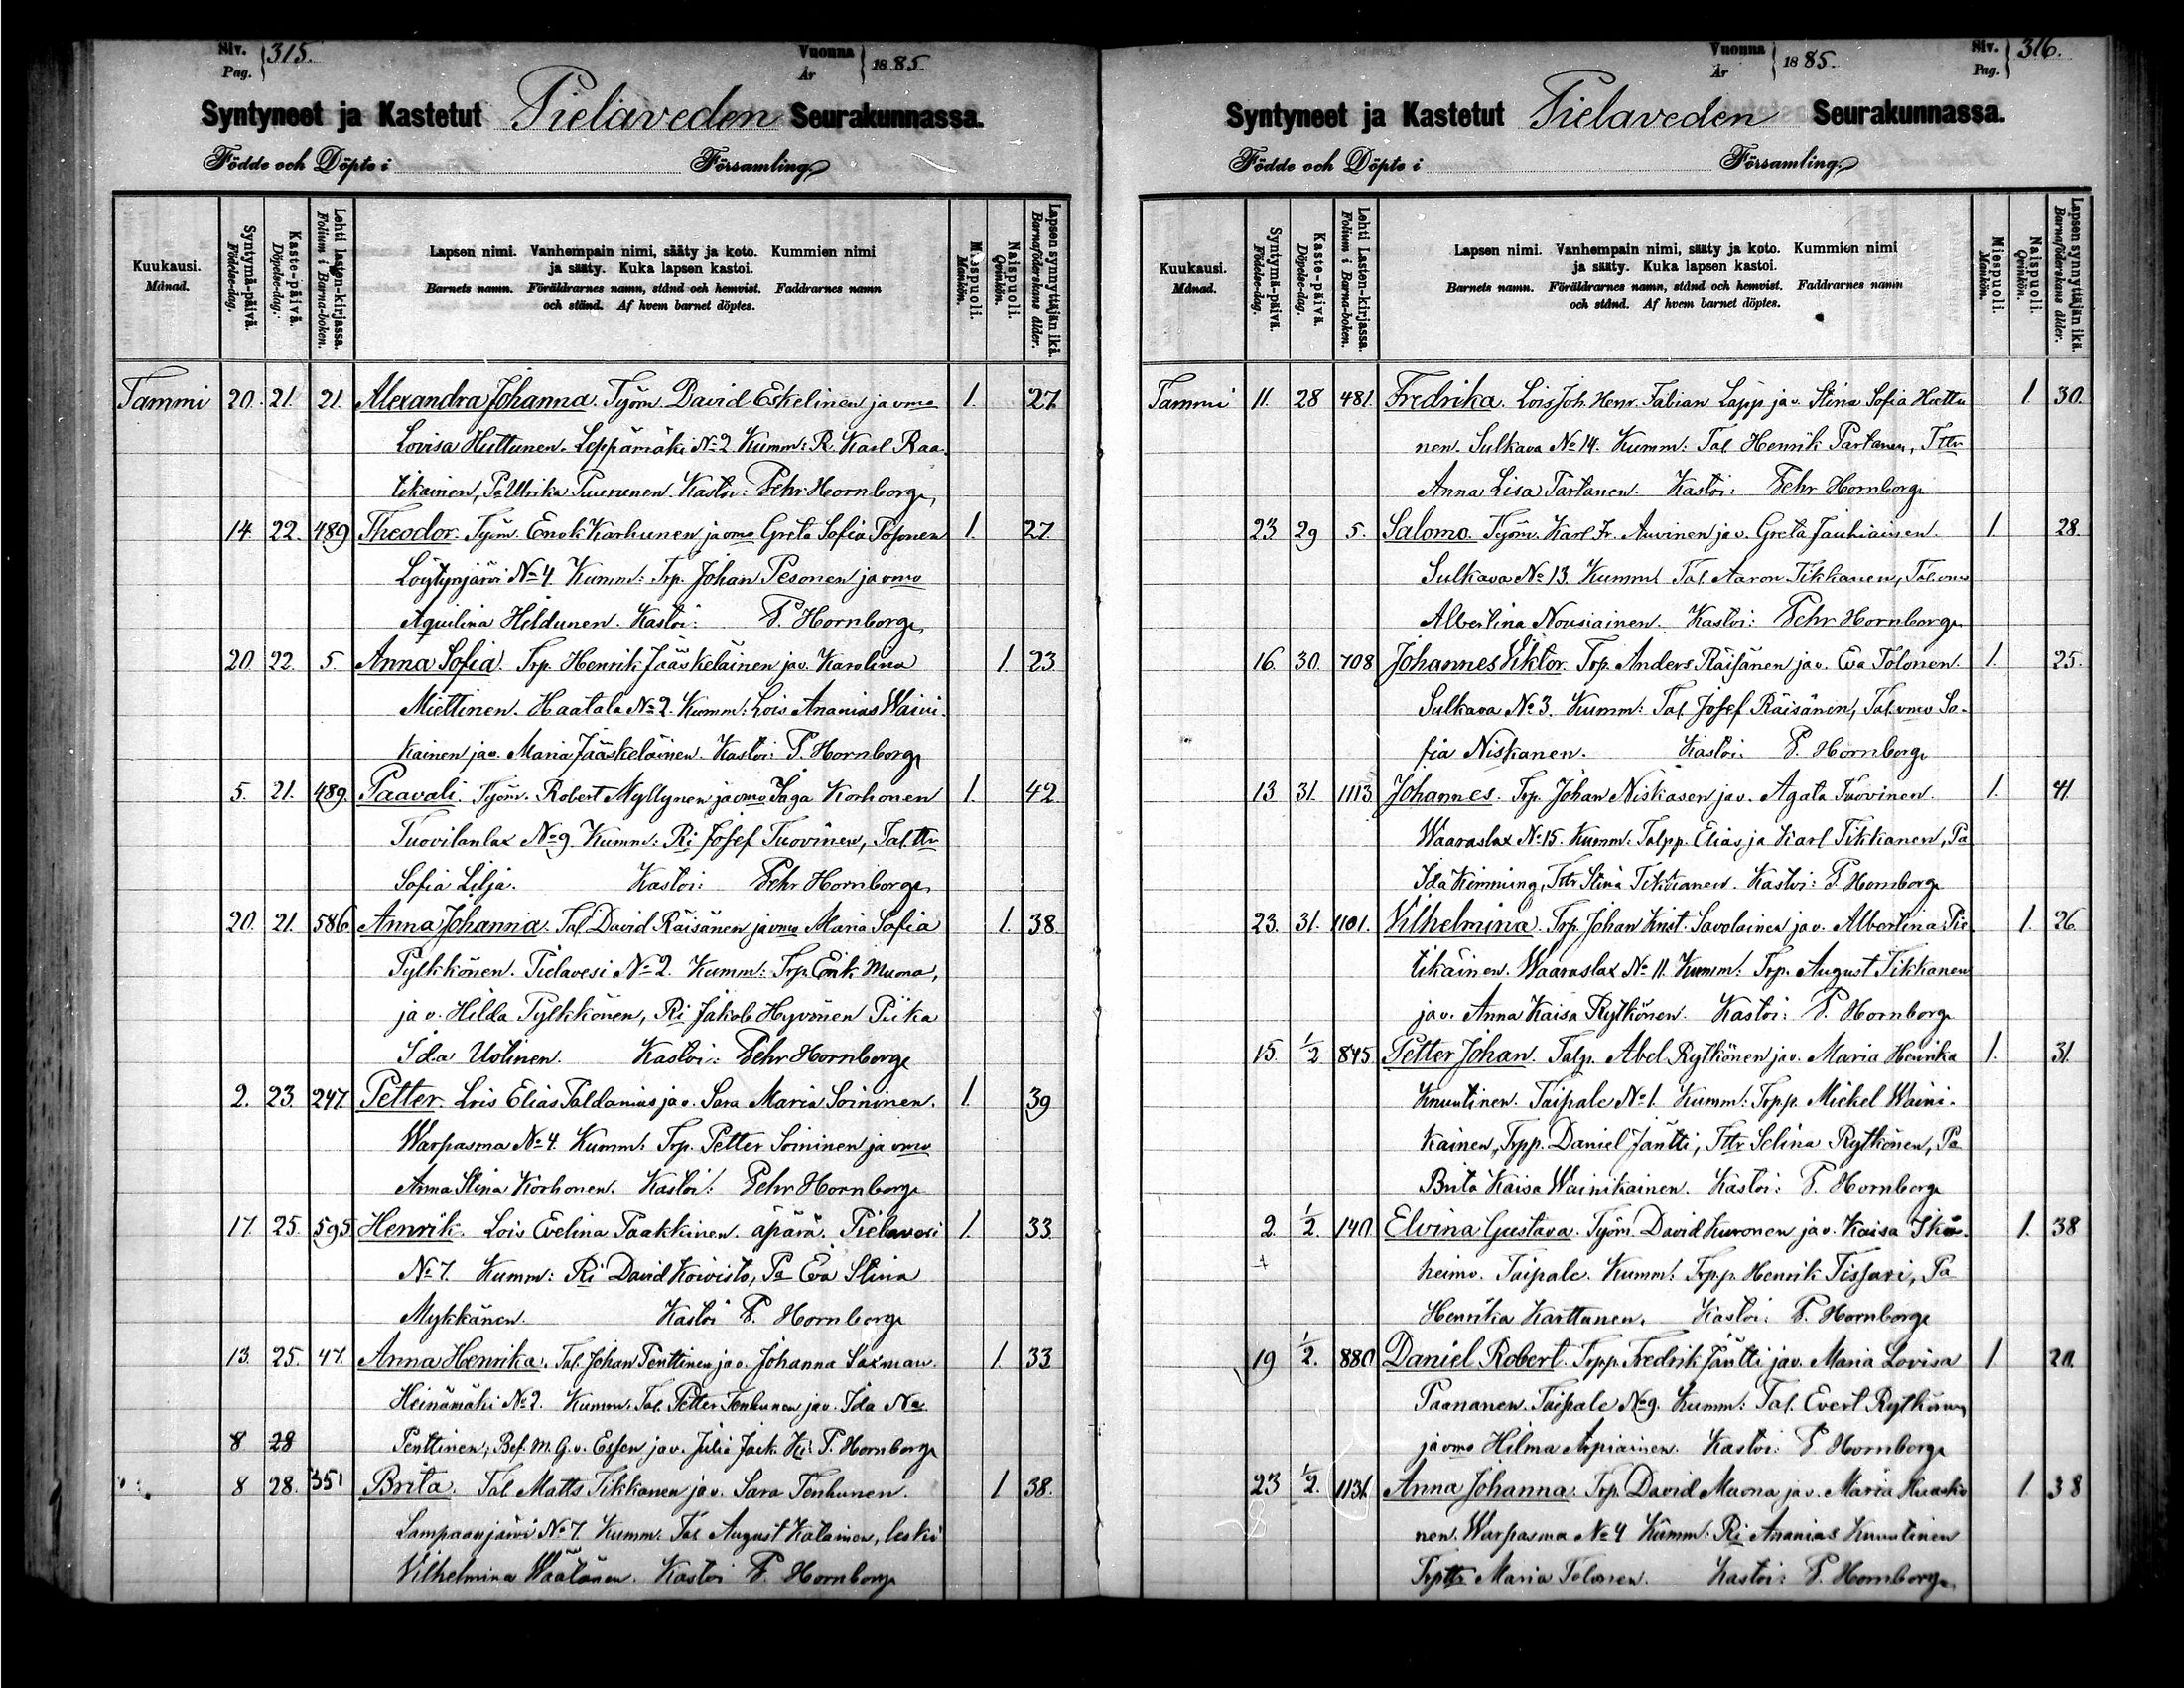 Siv. Pag. 315. Vuonna År 1885.
Syntyneet ja Kastetut Pielaveden Seurakunnassa.
Födde och Döpte i Församling.
Kuukausi. Månad.
Syntymä-päivä. Födelse-dag.
Kaste-päivä. Döpelse-dag.
Lehti lasten-kirjassa. Folium i Barna-boken.
Lapsen nimi. Vanhempain nimi, sääty ja koto. Kummien nimi
ja sääty. Kuka lapsen kastoi.
Barnets namn. Föräldrarnes namn, stånd och hemvist. Faddrarnes namn
och stånd. Af hvem barnet döptes.
Miespuoli. Mankön.
Naispuoli. Qvinkön.
Lapsen synnyttäjän ikä. Barnaföderskans ålder.
Tammi 20. 21. 21. Alexandra Johanna. Työm. David Eskelinen ja vmo 1. 27.
Lovisa Huttunen. Leppämäki No 2. Kumm: R. Karl Raa-
tikainen, Pa Ulrika Puurunen. Kastoi: Pehr Hornborg.
14. 22. 489 Theodor. Työm. Enok Karhunen ja vmo Greta Sofia Posonen 1. 27.
Löytynjärvi No 4. Kumm: Trp. Johan Pesonen ja vmo
Aquilina Hildunen. Kastoi: P. Hornborg.
20. 22. 5. Anna Sofia. Trp. Henrik Jääskeläinen ja v. Karolina 1. 23
Miettinen. Haatala No 2. Kumm: Lois Ananias Waini-
kainen ja v. Maria Jääskeläinen. Kastoi: P. Hornborg
5. 21. 489. Paavali. Työm. Robert Myllynen ja vmo Inga Korhonen 1. 42.
Tuovilanlax No 9. Kumm: Ri Josef Tuovinen, Tal. ttr
Sofia Lilja. Kastoi: Pehr Hornborg.
20. 21. 586 Anna Johanna. Tal David Räisänen ja vmo Maria Sofia 1. 38.
Pylkkönen. Pielavesi No 2. Kumm: Trp. Erik Muona,
ja v. Hilda Pylkkönen, Ri Jakob Hyvönen Piika
Ida Uotinen. Kastoi: Pehr Hornborg
2. 23. 247. Petter. Lois Elias Taldanius ja v. Sara Maria Soininen. 1. 39
Warpasma No 4. Kumm: Trp. Petter Soininen ja vmo
Anna Stina Korhonen. Kastoi: Pehr Hornborg
17. 25. 595 Henrik. Lois Evelina Paakkinen. äpärä. Pielavesi 1. 33.
No 7. Kumm: Ri David Koivisto, Pa Eva Stina
Mykkänen. Kastoi P. Hornborg
13. 25. 47. Anna Henrika. Tal. Johan Penttinen ja v. Johanna Saxman. 1. 33
Heinämäki No 2. Kumm: Tal. Petter Tenhunen ja v. Ida
8 28 Penttinen, Bef. M. G. v. Essen ja v. Julie Jack. P. Hornborg
8 28. 351 Brita. Tal Matts Tikkanen ja v. Sara Tenhunen. 1 38.
Lampaanjärvi No 7. Kumm: Tal August Katainen, leski
Vilhelmina Wäätänen. Kastoi P. Hornborg
Vuonna År 1885. Siv. Pag. 316.
Syntyneet ja Kastetut Pielaveden Seurakunnassa.
Födde och Döpte i Församling.
Kuukausi. Månad.
Syntymä-päivä. Födelse-dag.
Kaste-päivä. Döpelse-dag.
Lehti Lasten-kirjassa. Folium i Barna-boken.
Lapsen nimi. Vanhempain nimi, sääty ja koto. Kummien nimi
ja sääty. Kuka lapsen kastoi.
Barnets namn. Föräldrarnes namn, stånd och hemvist. Faddrarnes namn
och stånd. Af hvem barnet döptes.
Miespuoli. Mankön.
Naispuoli. Qvinkön.
Lapsen synnyttäjän ikä. Barnaföderskans ålder.
Tammi 11. 28 481. Fredrika. Lois Joh. Henr. Fabian Lapp ja v. Stina Sofia Huttu 1. 30.
nen. Sulkava No 14. Kumm: Tal Henrik Partanen, Tttr
Anna Lisa Partanen. Kastoi: Pehr Hornborg
23 29 5. Salomo. Työm. Karl Fr. Auvinen ja v. Greta Jauhiainen. 1. 28.
Sulkava No 13. Kumm: Tal. Aaron Tikkanen, Tal. vmo
Albertina Nousiainen. Kastoi: Pehr Hornborg
16. 30. 708 Johannes Viktor. Trp. Anders Räisänen ja v. Eva Tolonen. 1. 25.
Sulkava No 3. Kumm: Tal Josef Räisänen, Tal. vmo So-
fia Niskanen. Kastoi: P. Hornborg
13 31. 1113 Johannes. Trp. Johan Niskasen ja v. Agata Tuovinen. 1. 41.
Waaraslax No 15. Kumm: Talpp. Elias ja Karl Tikkanen, Pa
Ida Kemming, Tttr Stina Tikkanen. Kastoi: P. Hornborg
23. 31. 1101. Vilhelmina. Trp. Johan Krist. Savolainen ja v. Albertina Pie 1. 26
tikäinen. Waaraslax No 11. Kumm: Trp. August Tikkanen
ja v. Anna Kaisa Rytkönen. Kastoi: P. Hornborg
15. 1/2 845 Petter Johan. Talp. Abel Rytkönen ja v. Maria Henrika 1. 31.
Knuutinen. Taipale No 1. Kumm: Trpp. Mickel Waini-
kainen, Trpp. Daniel Jäntti, Tttr Selina Rytkönen, Pa
Brita Kaisa Wainikainen. Kastoi: P. Hornborg
2. 1/2. 140 Elvina Gustava. Työm. David Kuronen ja v. Kaisa Ikä- 1. 38
heimo. Taipale. Kumm: Trpp. Henrik Tissari, Pa
Henrika Karttunen. Kastoi: P. Hornborg
19 1/2. 880 Daniel Robert. Trpp. Fredrik Jäntti ja v. Maria Lovisa 1 20.
Paananen. Taipale No 9. Kumm: Tal. Evert Rytkönen
ja vmo Hilma Arpiainen. Kastoi: P. Hornborg
23 1/2. 1131. Anna Johanna. Trp. David Muona ja v. Maria 1. 38
nen. Warpasma No 4 Kumm: Ri Ananias Knuutinen
Trpttr Maria Tolonen. Kastoi: P. Hornborg.